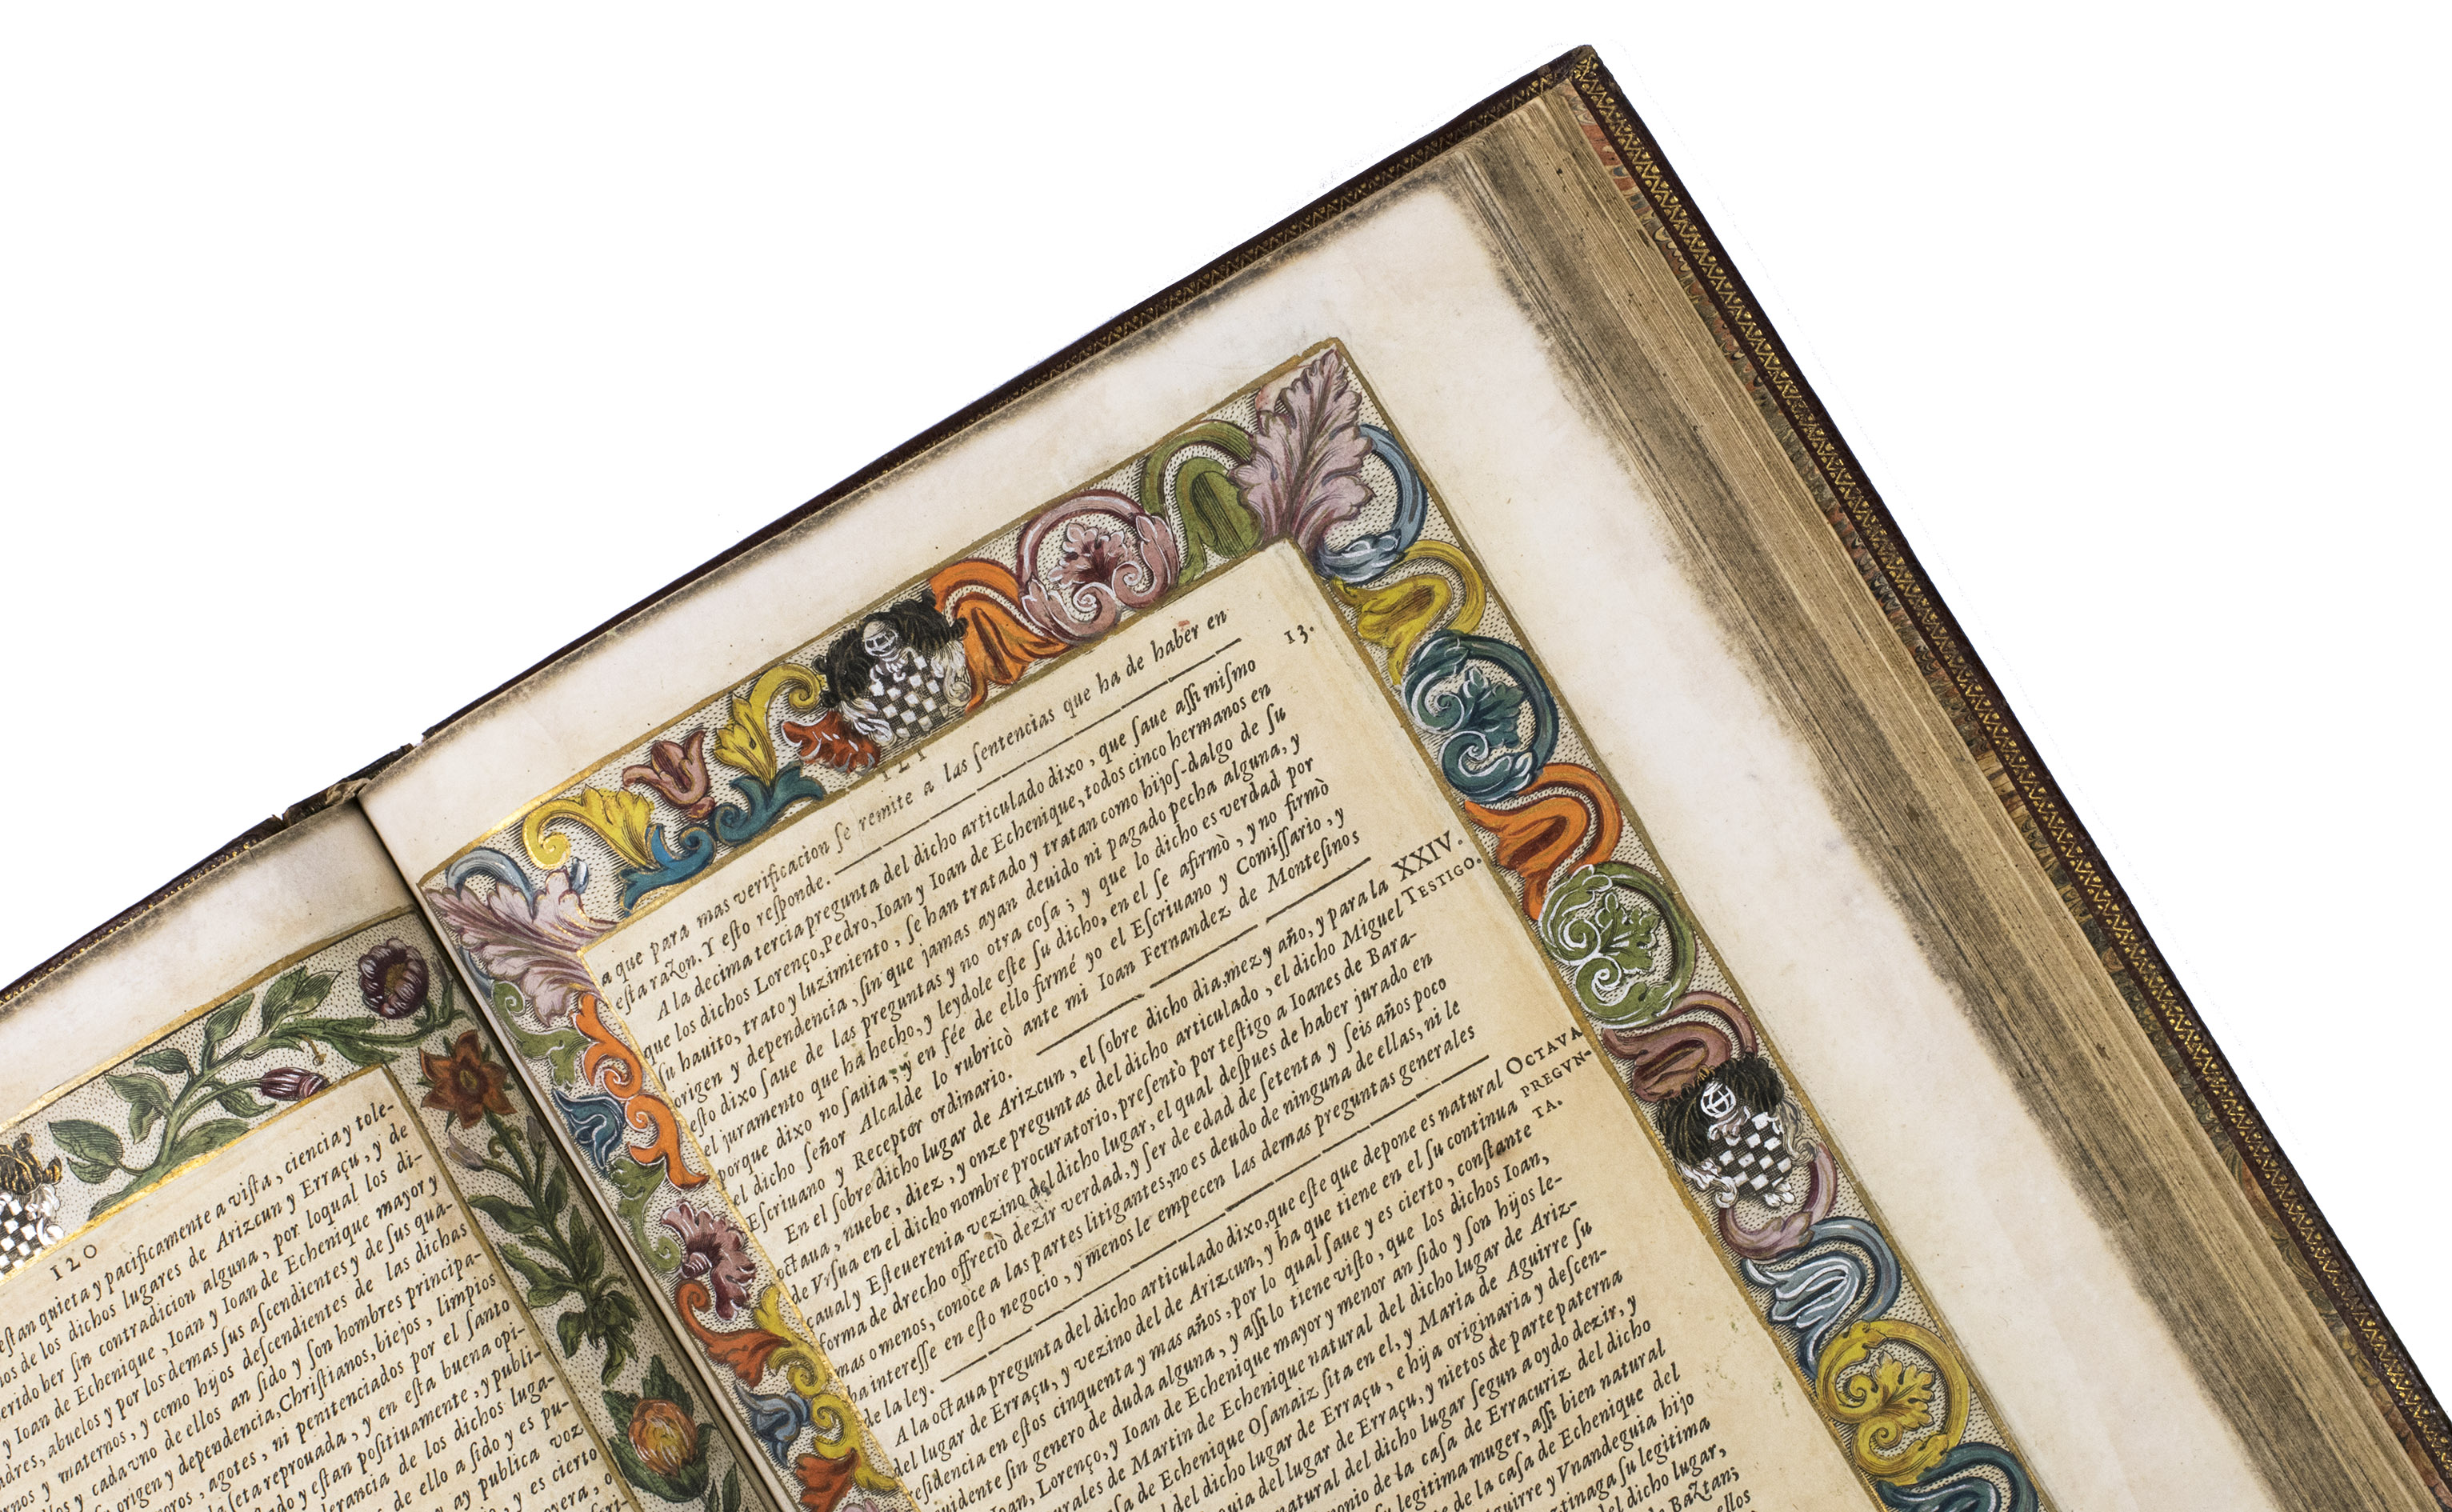 120
estan quieta y pacificamente a vista, ciencia y tole-
de los dichos lugares de Arizcun y Erraçu, y de
ber sin contradicion alguna, por loqual los di-
y Ioan de Echenique, Ioan y Ioan de Echenique mayor y
abuelos y por los demas sus ascendientes y de sus qua-
y maternos, y como hijos descendientes de las dichas
y cada vno de ellos an sido y son hombres principa-
origen y dependencia, Christianos, biejos, limpios
agotes, ni penitenciados por el santo
reprouada, y en esta buena opi-
y estan positiuamente, y publi-
de los dichos luga-
de ello a sido y es pu-
ay publica voz
y es cierto
121
a que para mas verificacion ſe remite a las ſentencias que ha de haber en
eſta razon. Y eſto reſponde.
13.
A la decima tercia pregunta del dicho articulado dixo, que ſaue aſſi miſmo
que los dichos Lorenço, Pedro, Ioan y Ioan de Echenique, todos cinco hermanos en
ſu hauito, trato y luzimiento, ſe han tratado y tratan como hijoſ-dalgo de ſu
origen y dependencia, ſin que jamas ayan deuido ni pagado pecha alguna, y
eſto dixo ſaue de las preguntas y no otra coſa; y que lo dicho es verdad por
el juramento que ha hecho, y leydole eſte ſu dicho, en el ſe afirmò, y no firmò
porque dixo no ſauia; y en fée de ello firmé yo el Eſcriuano y Comiſſario, y
el dicho ſeñor Alcalde lo rubricò ante mi Ioan Fernandez de Monteſinos
Eſcriuano y Receptor ordinario.
En el ſobre dicho lugar de Arizcun, el ſobre dicho dia, mez y año, y para la
XXIV.
TESTIGO.
octaua, nuebe, diez, y onze preguntas del dicho articulado, el dicho Miguel
de Vrſua en el dicho nombre procuratorio, preſentò por teſtigo a Ioanes de Bara-
caual y Eſteuerenia vezino del dicho lugar, el qual deſpues de haber jurado en
forma de drecho offreciò dezir verdad, y ſer de edad de ſetenta y ſeis años poco
mas o menos, conoce a las partes litigantes, no es deudo de ninguna de ellas, ni le
ba intereſſe en eſto negocio, y menos le empecen las demas preguntas generales
de la ley.
A la octaua pregunta del dicho articulado dixo, que eſte que depone es natural
OCTAVA
PREGVN-
TA.
del lugar de Erraçu, y vezino del de Arizcun, y ha que tiene en el ſu continua
reſidencia en eſtos cinquenta y mas años, por lo qual ſaue y es cierto, conſtante
euidente ſin genero de duda alguna, y aſſi lo tiene viſto, que los dichos Ioan,
Ioan, Lorenço, y Ioan de Echenique mayor y menor an ſido y ſon hijos le-
de Martin de Echenique natural del dicho lugar de Ariz-
de Echenique Oſanaiz ſita en el, y Maria de Aguirre ſu
del dicho lugar de Erraçu, e hija originaria y deſcen-
del lugar de Erraçu, y nietos de parte paterna
natural del dicho lugar ſegun a oydo dezir, y
de la caſa de Erracuriz del dicho
legitima muger, aſſi bien natural
de la caſa de Echenique del
y Vnandeguia hijo
ſu legitima
del dicho lugar,
de Baztan;
ellos